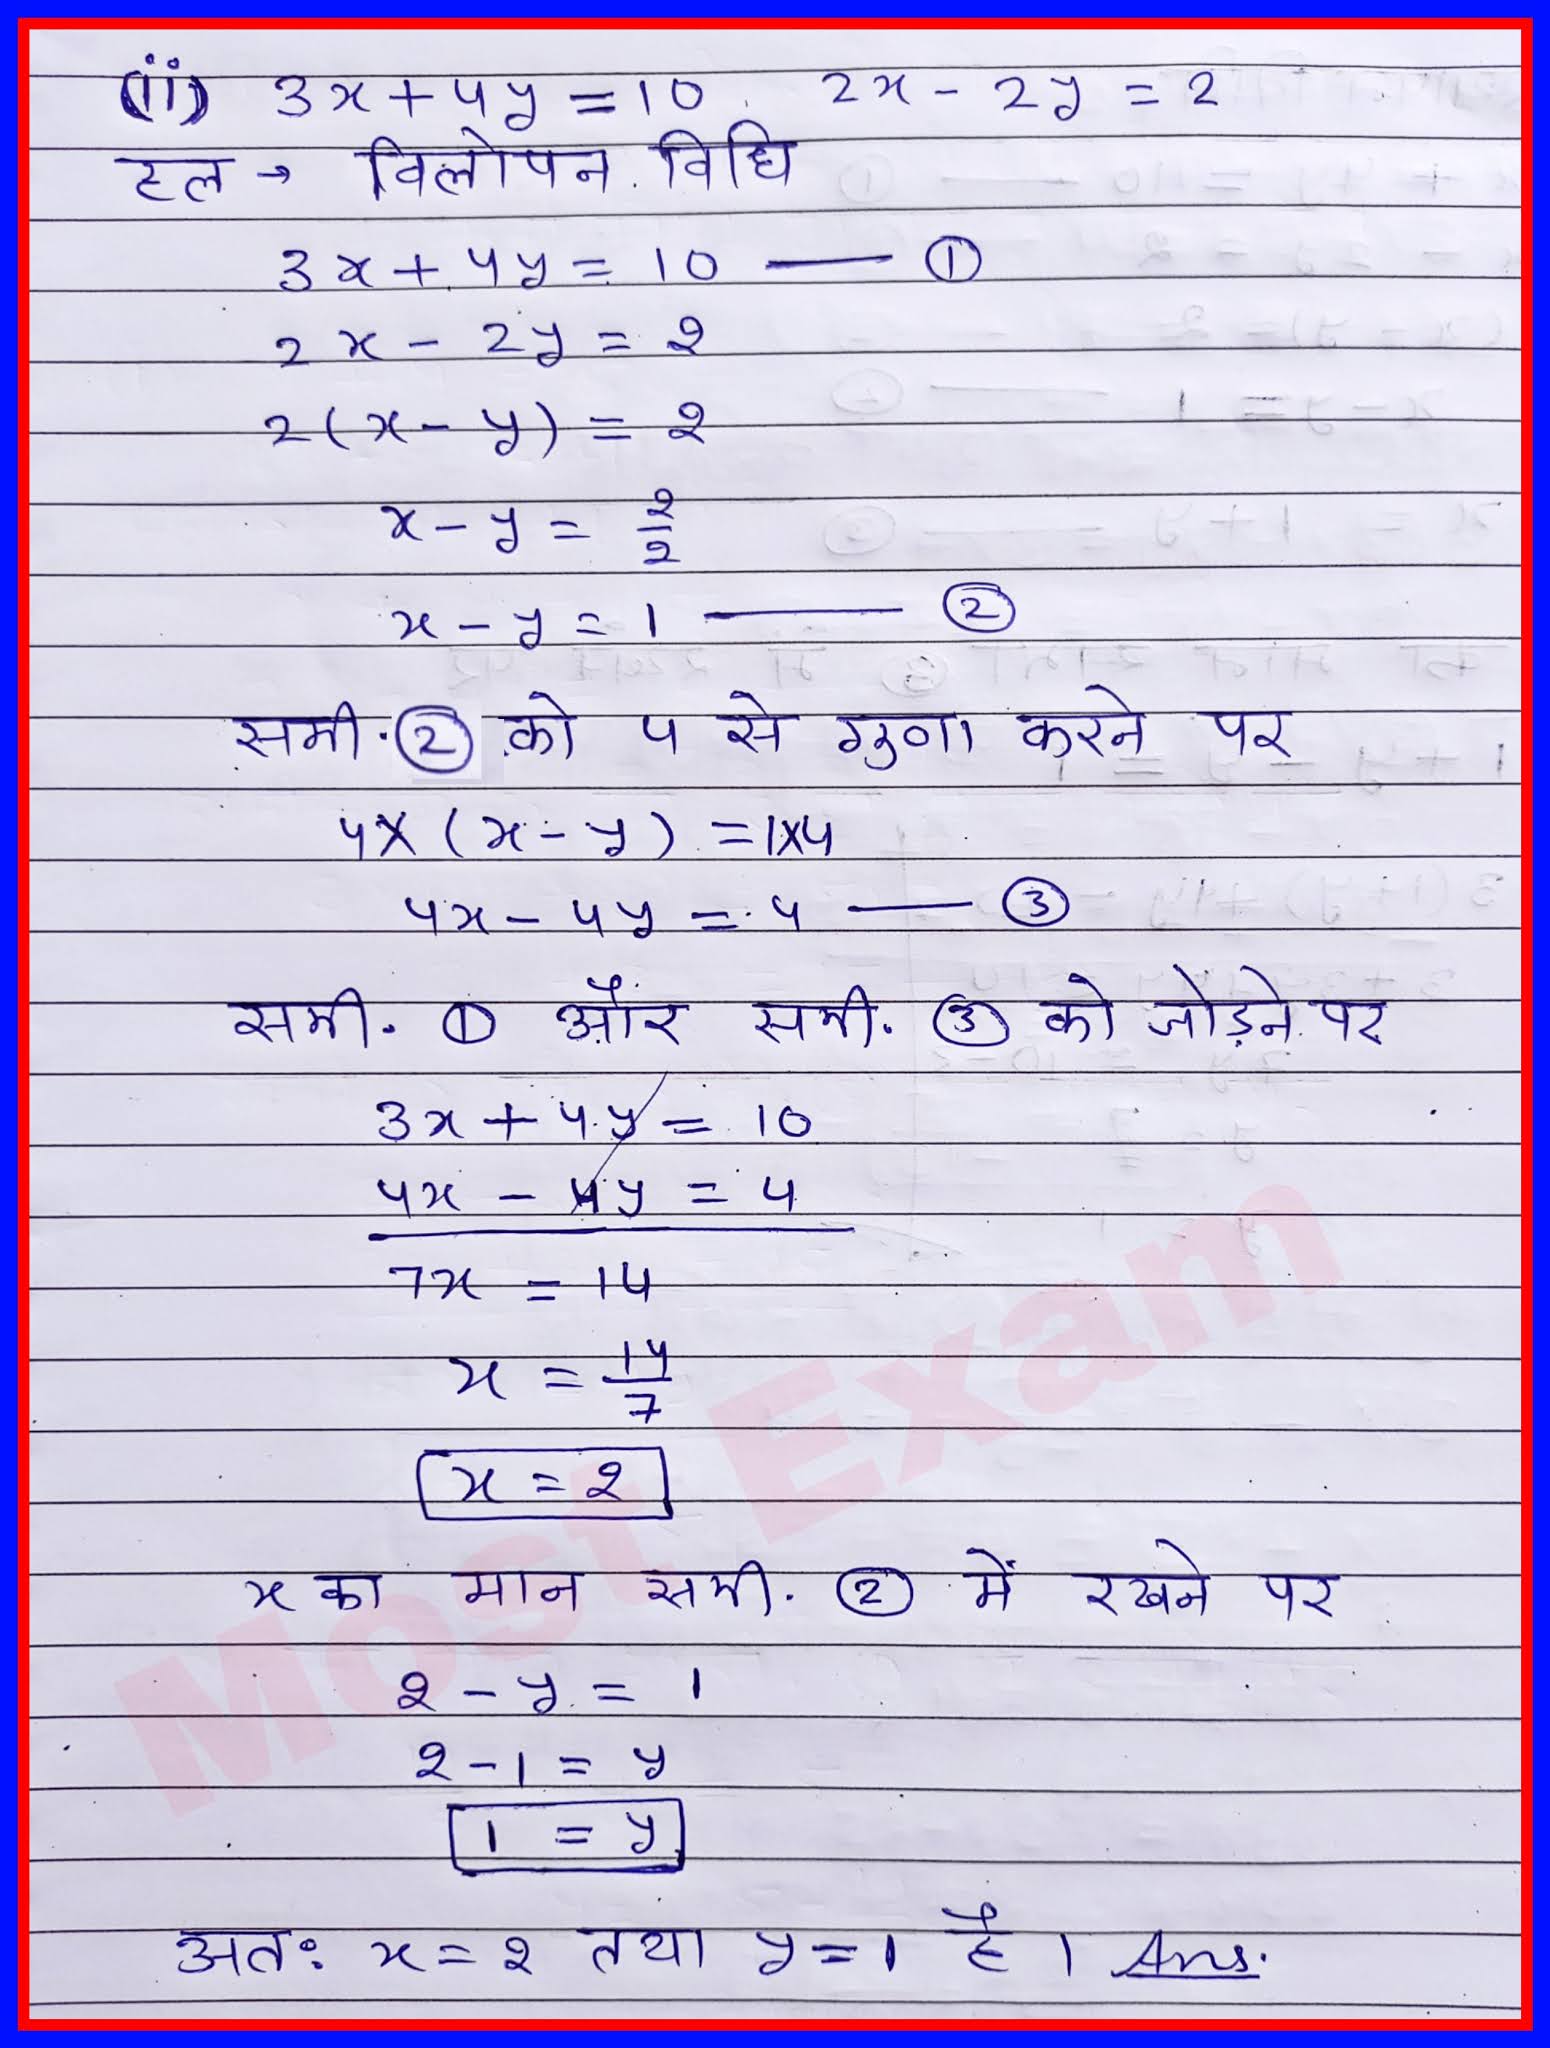 (ii) 3x + 4y = 10. 2x - 2y = 2
हल → विलोपन विधि
3x + 4y = 10 —— ①
2x - 2y = 2
2(x - y) = 2
x - y = 2/2
x - y = 1 —— ②
समी. ② को 4 से गुणा करने पर
4X(x - y) = 1X4
4x - 4y = 4 —— ③
समी. ① और समी. ③ को जोड़ने पर
3x + 4y = 10
4x - 4y = 4
7x = 14
x = 14/7
x = 2
x का मान समी. ② में रखने पर
2 - y = 1
2 - 1 = y
1 = y
अतः x = 2 तथा y = 1 है। Ans.
Most Exam